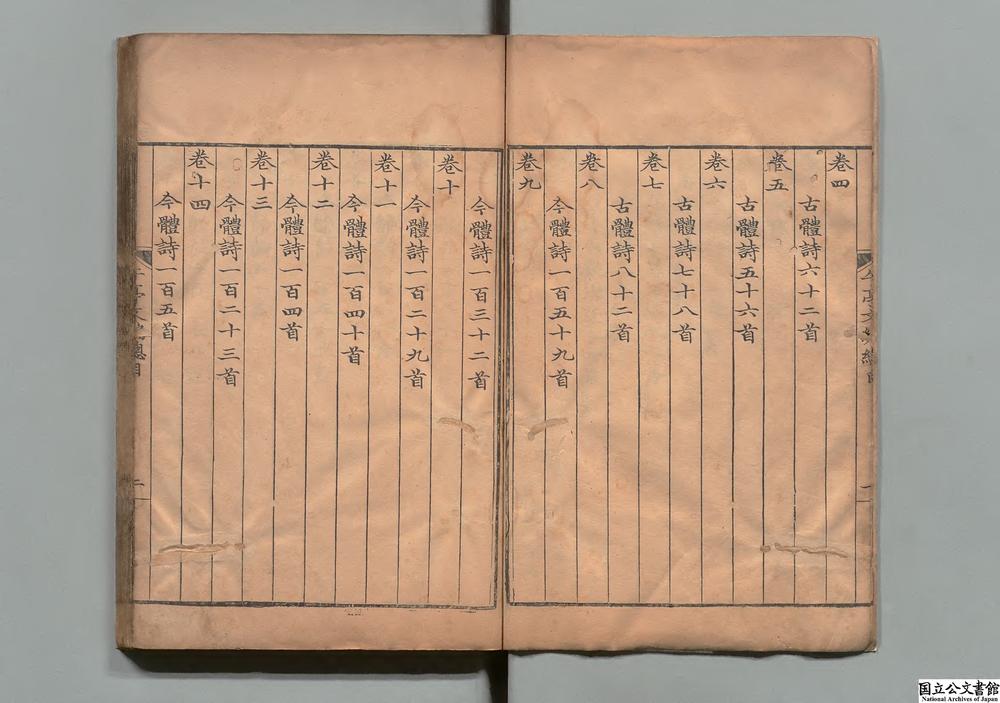 卷四
古體詩六十二首
卷五
古體詩五十六首
卷六
古體詩七十八首
卷七
古體詩八十二首
卷八
今體詩一百五十九首
卷九
今體詩一百三十二首
卷十
今體詩一百二十九首
卷十一
今體詩一百四十首
卷十二
今體詩一百四首
卷十三
今體詩一百二十三首
卷十四
今體詩一百五首
總目
二
国立公文書館
National Archives of Japan